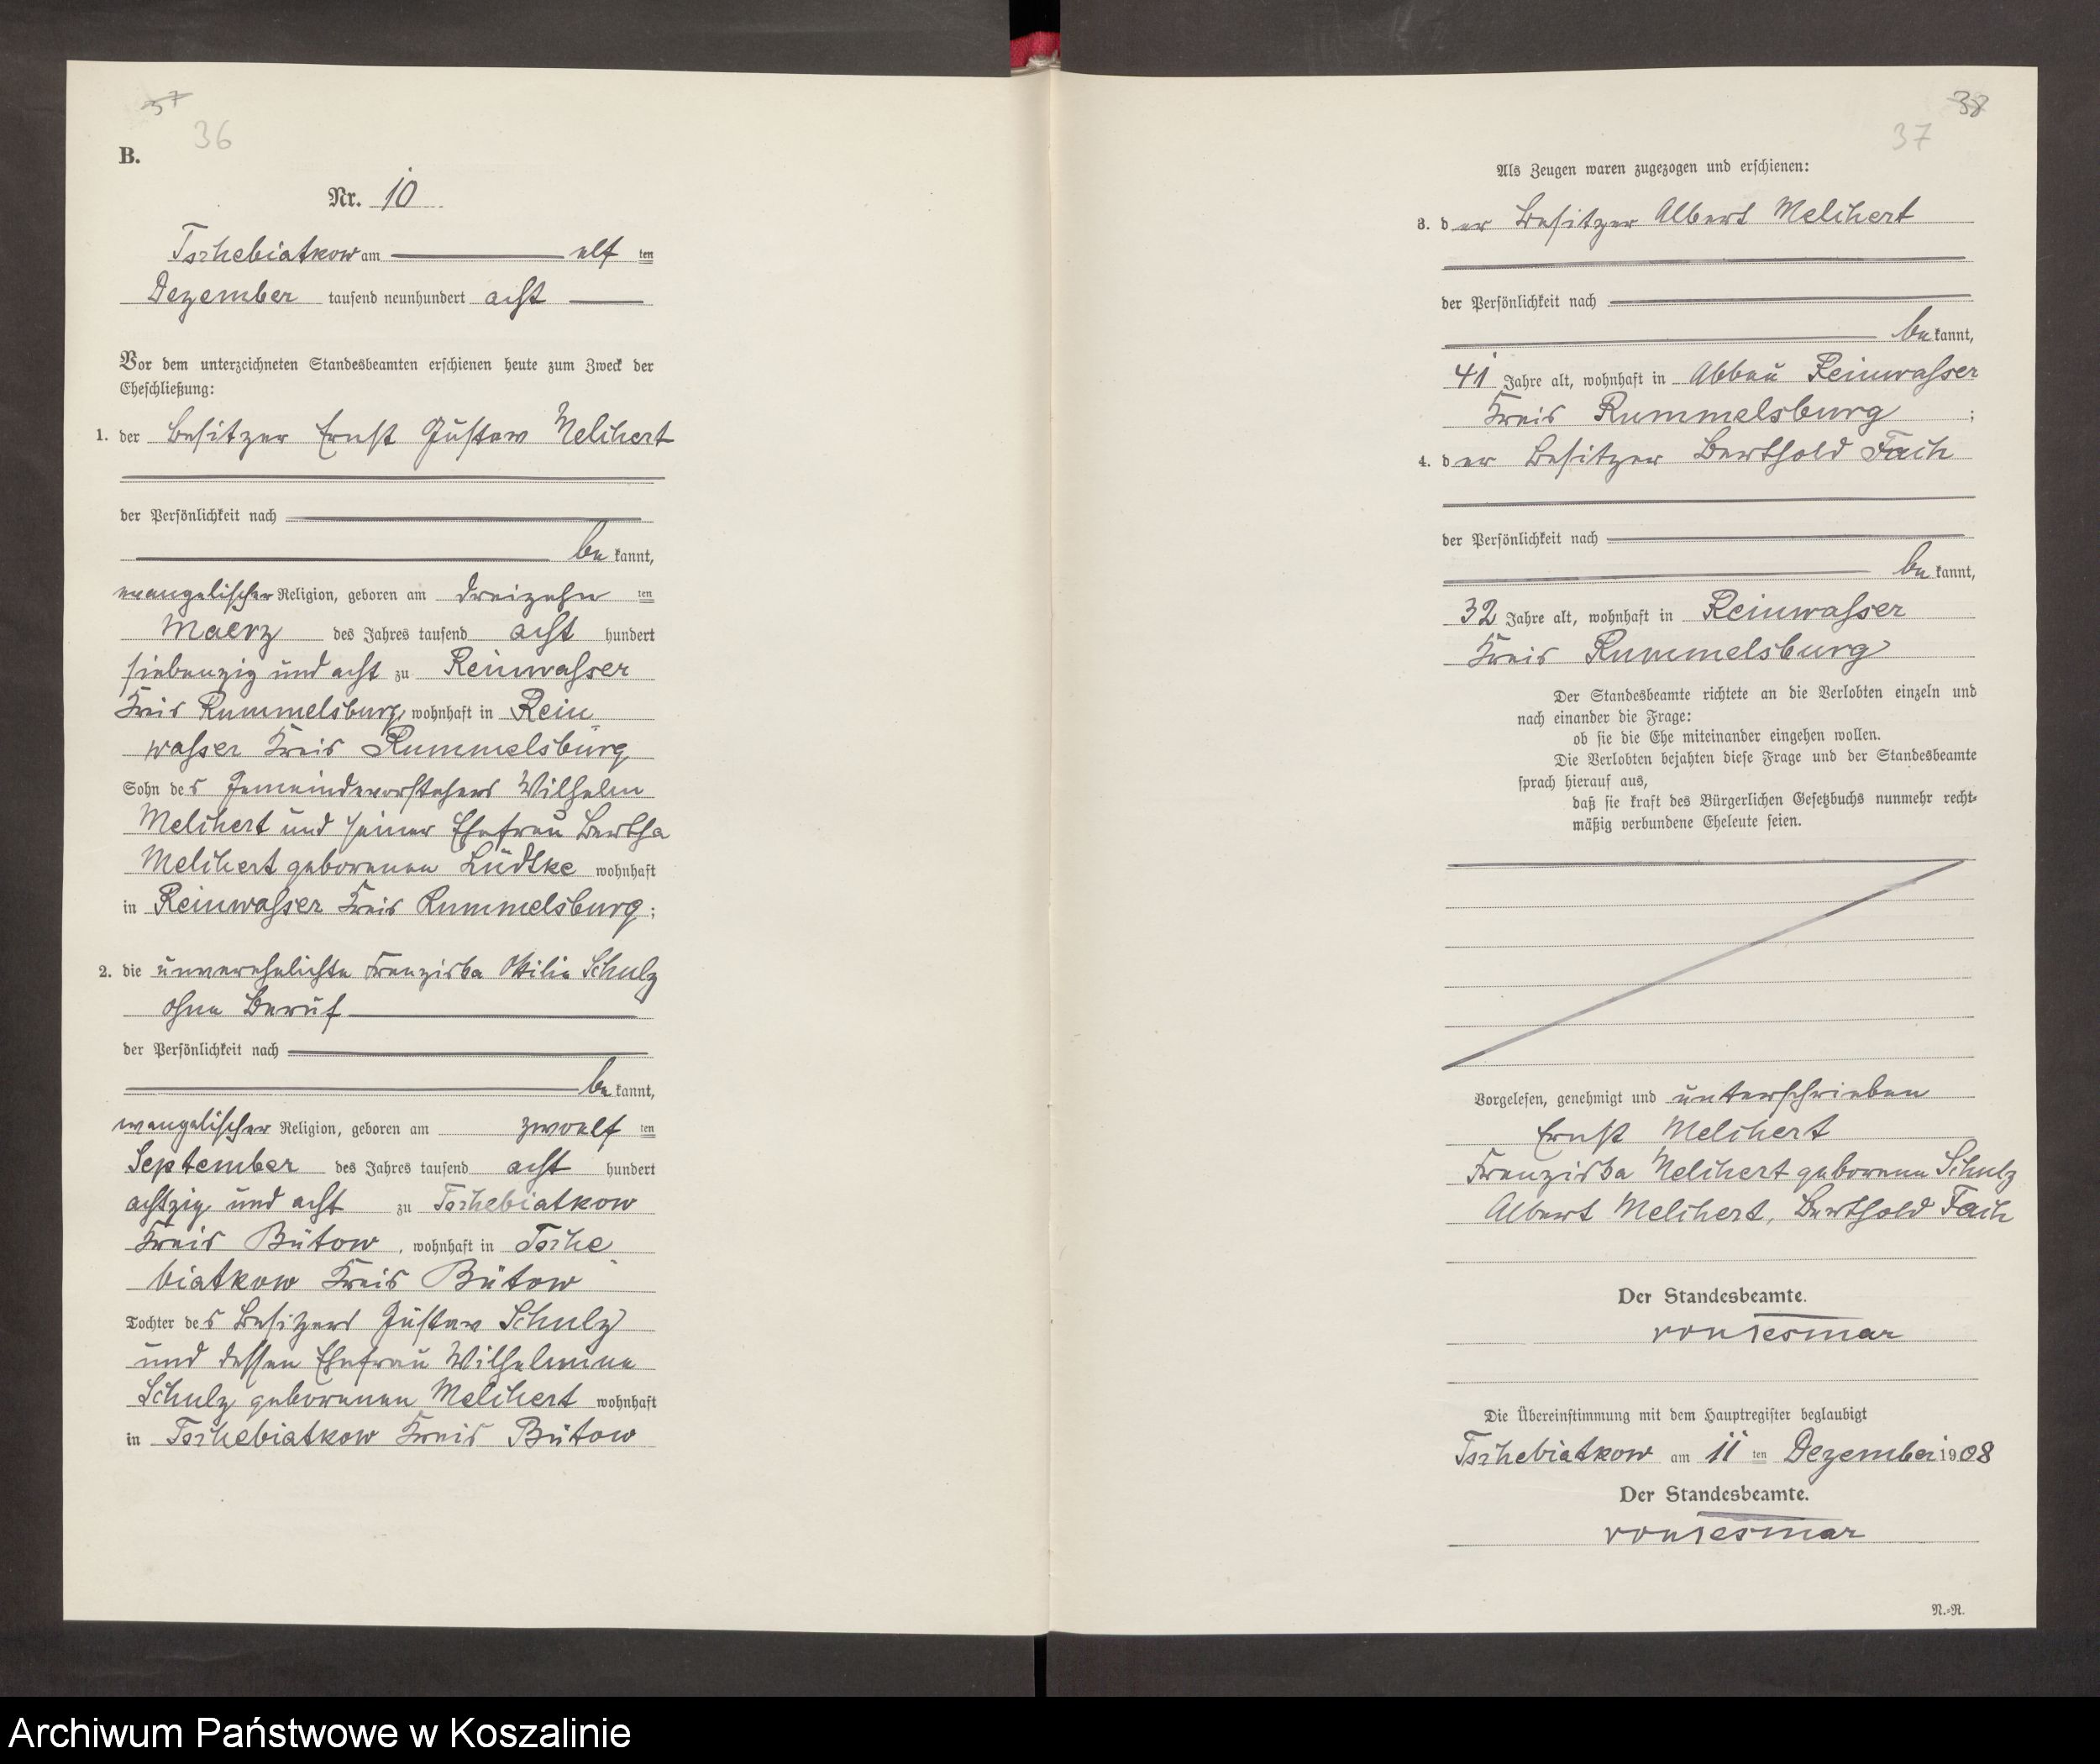 37
36
B.
Nr. 10
Tschebiatkow am elf ten
Dezember tausend neunhundert acht
Vor dem unterzeichneten Standesbeamten erschienen heute zum Zweck der
Eheschließung:
1. der Besitzer Ernst Gustav Melchert
der Persönlichkeit nach
be kannt,
evangelischer Religion, geboren am dreizehn ten
Maerz des Jahres tausend acht hundert
siebenzig und acht zu Reinwasser
Kreis Rummelsburg, wohnhaft in Rein
wasser Kreis Rummelsburg
Sohn des Gemeindevorstehers Wilhelm
Melchert und seiner Ehefrau Bertha
Melchert geborenen Lüdtke wohnhaft
in Reinwasser Kreis Rummelsburg;
2. die unverehelichte Franziska Ottilie Schulz
ohne Beruf
der Persönlichkeit nach
be kannt,
evangelischer Religion, geboren am zwoelf ten
September des Jahres tausend acht hundert
achtzig und acht zu Tschebiatkow
Kreis Bütow, wohnhaft in Tsche
biatkow Kreis Bütow
Tochter des Besitzers Gustav Schulz
und dessen Ehefrau Wilhelmine
Schulz geborenen Melchert wohnhaft
in Tschebiatkow Kreis Bütow
38
37
Als Zeugen waren zugezogen und erschienen:
3. der Besitzer Albert Melchert
der Persönlichkeit nach
be kannt,
41 Jahre alt, wohnhaft in Abbau Reinwasser
Kreis Rummelsburg;
4. der Besitzer Berthold Fach
der Persönlichkeit nach
be kannt,
32 Jahre alt, wohnhaft in Reinwasser
Kreis Rummelsburg
Der Standesbeamte richtete an die Verlobten einzeln und
nach einander die Frage:
ob sie die Ehe miteinander eingehen wollen.
Die Verlobten bejahten diese Frage und der Standesbeamte
sprach hierauf aus,
daß sie kraft des Bürgerlichen Gesetzbuchs nunmehr recht-
mäßig verbundene Eheleute seien.
Vorgelesen, genehmigt und unterschrieben
Ernst Melchert
Franziska Melchert geborene Schulz
Albert Melchert, Berthold Fach
Der Standesbeamte.
von Tesmar
Die Übereinstimmung mit dem Hauptregister beglaubigt
Tschebiatkow am 11 ten Dezember 1908
Der Standesbeamte.
von Tesmar
N.-R.
Archiwum Państwowe w Koszalinie